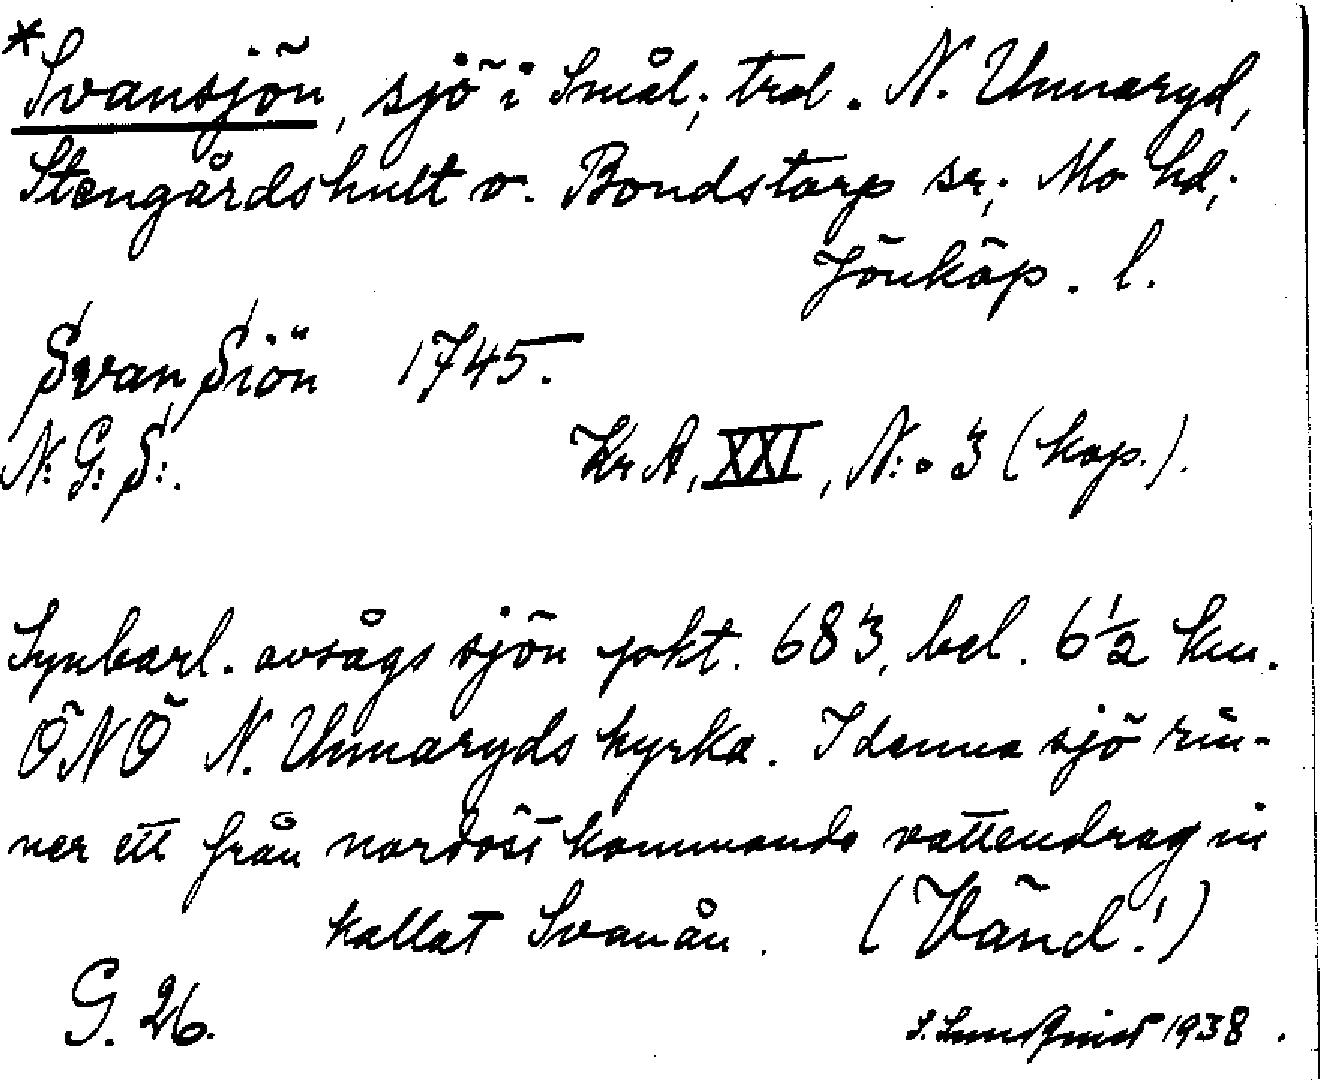 *Svansjön, sjö i Smål; trol. N. Unnaryd,
Stengårdshult o. Bondstorp sr; Mo hd;
Jönköp. l.
Svan Siön 1745.
N: G: S:.
KrA, XXI, N:o 3 (kop.).
Synbarl. avsågs sjön pkt. 683, bel. 6 1/2 km.
ÖNÖ N. Unnaryds kyrka. I denna sjö rin-
ner ett från nordost kommande vattendrag in
kallat Svanån. (Vänd!)
G. 26.
S. Lundquist 1938.